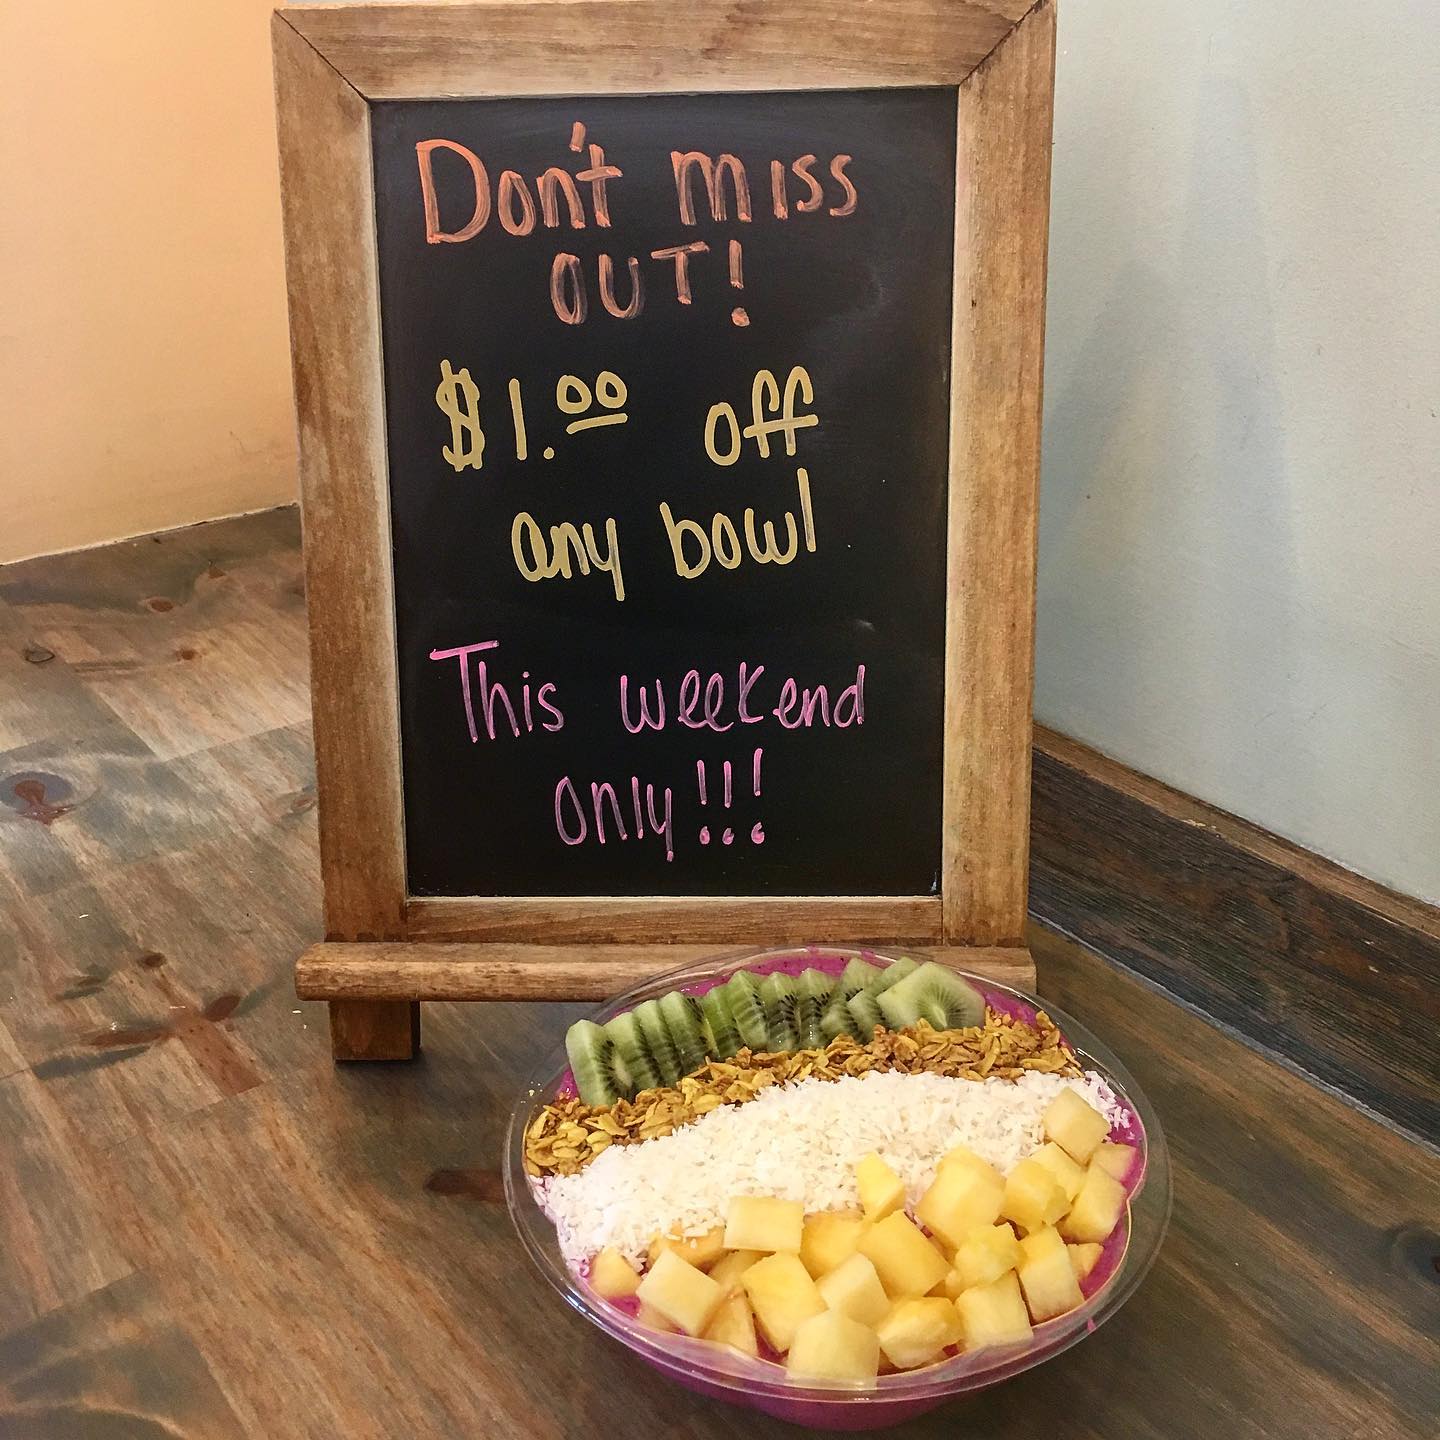 Don't miss
OUT!
$1.00 off
any bowl
This weekend
only!!!